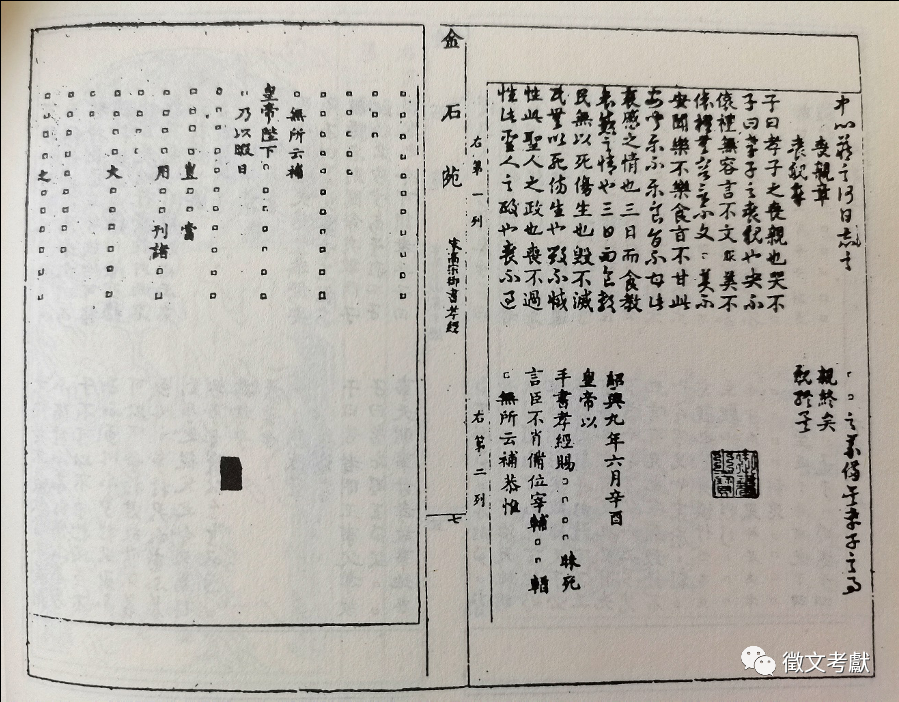 中心藏之何日忘之
喪親章
喪親章
子曰孝子之喪親也哭不
子曰孝子之喪親也哭不
偯禮無容言不文 美不
偯禮無容言不文 美不
安聞樂不樂食旨不甘此
安聞樂不樂食旨不甘此
哀慼之情也三日而食教
哀慼之情也三日而食教
民無以死傷生也毀不滅
民無以死傷生也毀不滅
性此聖人之政也喪不過
性此聖人之政也喪不過
右第一列
□□之義備矣孝子之事
親終矣
親終矣
紹興九年六月辛酉
皇帝以
手書孝經賜□□□□昧死
言臣不肖備位宰輔□□
□無所云補恭惟
右第二列
金石苑
宋高宗御書孝經
七
無所云補
皇帝陛下
乃以暇日
當
用刊諸
大
之
徵文考獻